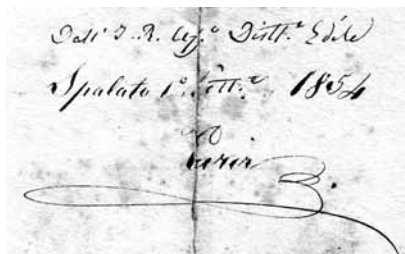 Dall' I. R. Uff.º Distt.e Edile
Spalato 1º. Sett.e 1854